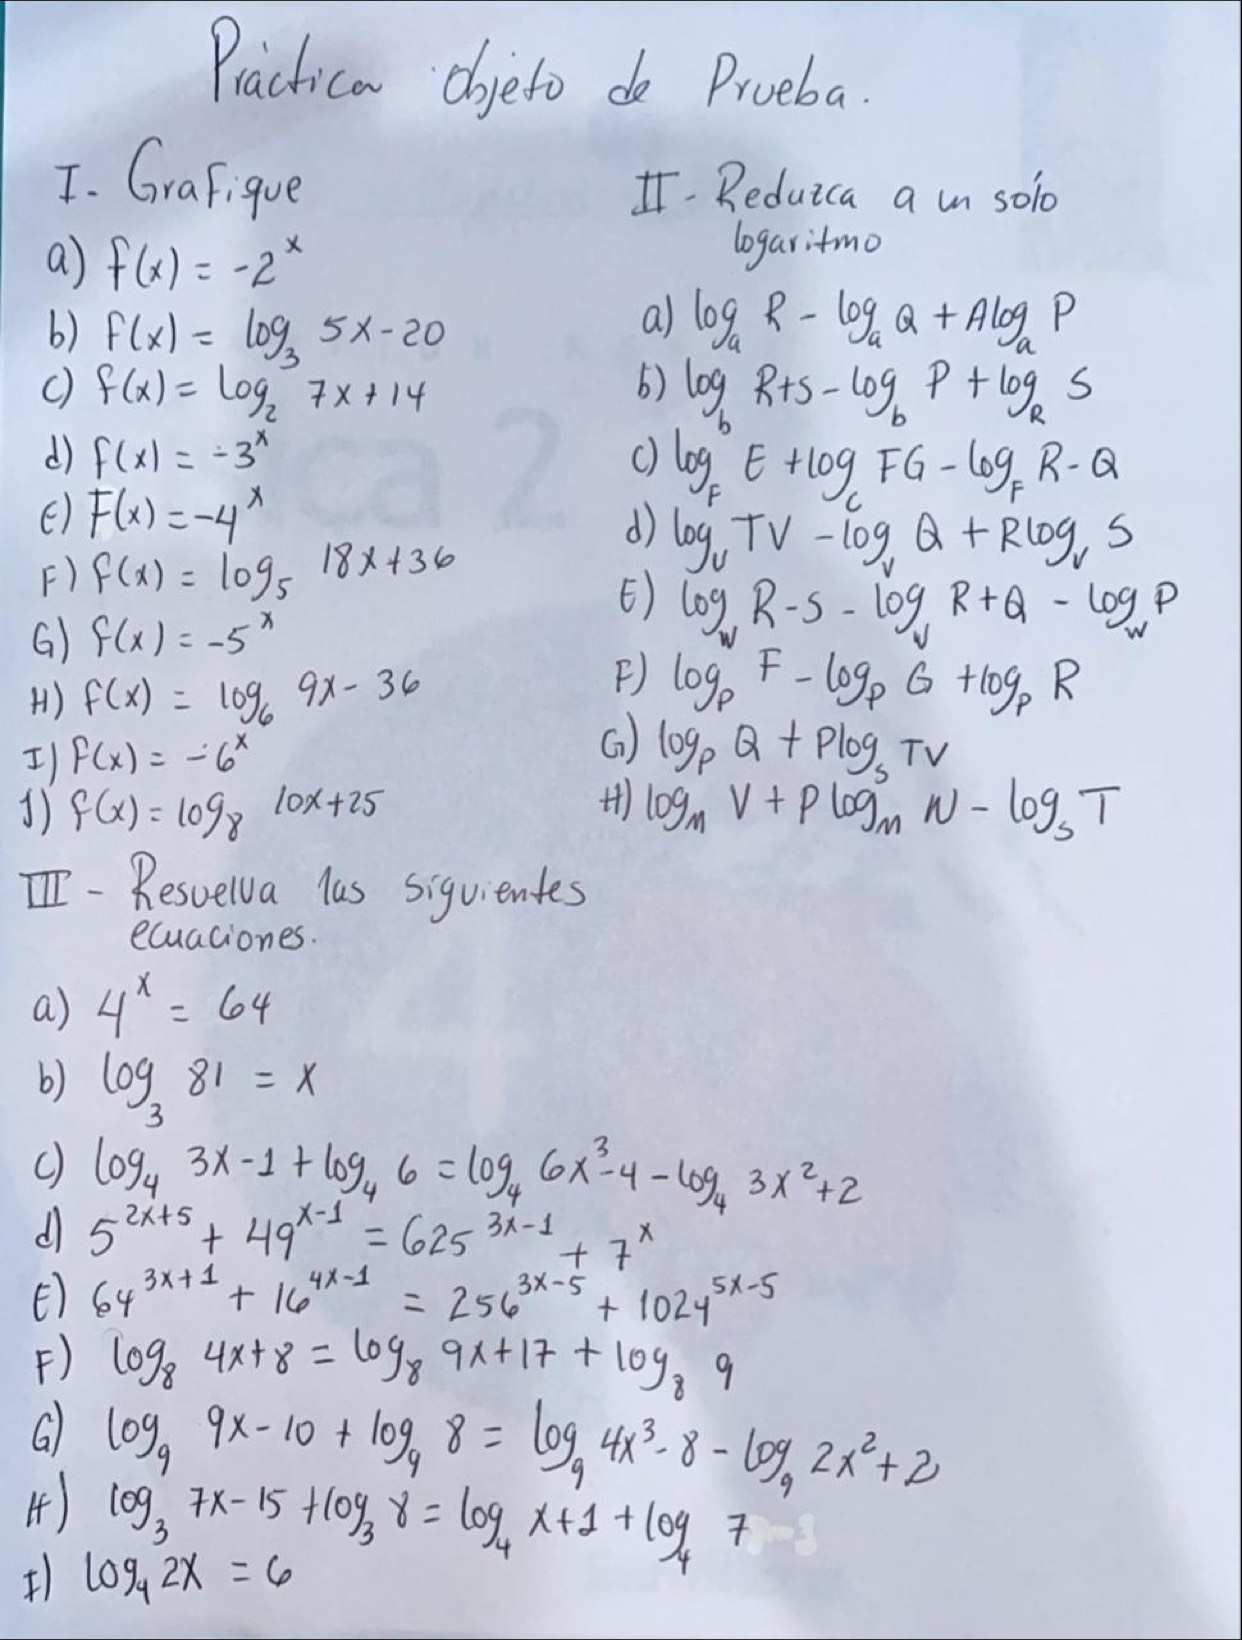 Práctica Objeto de Prueba.
I- Grafique
a) f(x) = -2^x
b) f(x) = log_3 5x-20
c) f(x) = log_2 7x+14
d) f(x) = -3^x
E) F(x) = -4^x
F) f(x) = log_5 18x+36
G) f(x) = -5^x
H) f(x) = log_6 9x-36
I) f(x) = -6^x
J) f(x) = log_8 10x+25
II- Reduzca a un sólo
logaritmo
a) log_a R - log_a Q + A log_a P
b) log_b R+S - log_b P + log_R S
c) log_F E + log_C FG - log_F R-Q
d) log_U TV - log_V Q + R log_V S
E) log_W R-S - log_V R+Q - log_W P
F) log_P F - log_P G + log_P R
G) log_P Q + P log_S TV
H) log_M V + P log_M N - log_S T
III - Resuelva las siguientes
ecuaciones.
a) 4^x = 64
b) log_3 81 = x
c) log_4 3x-1 + log_4 6 = log_4 6x^3-4 - log_4 3x^2+2
d) 5^{2x+5} + 49^{x-1} = 625^{3x-1} + 7^x
E) 64^{3x+1} + 16^{4x-1} = 256^{3x-5} + 1024^{5x-5}
F) log_8 4x+8 = log_8 9x+17 + log_8 9
G) log_9 9x-10 + log_9 8 = log_9 4x^3-8 - log_9 2x^2+2
H) log_3 7x-15 + log_3 8 = log_4 x+1 + log_4 7
I) log_4 2x = 6